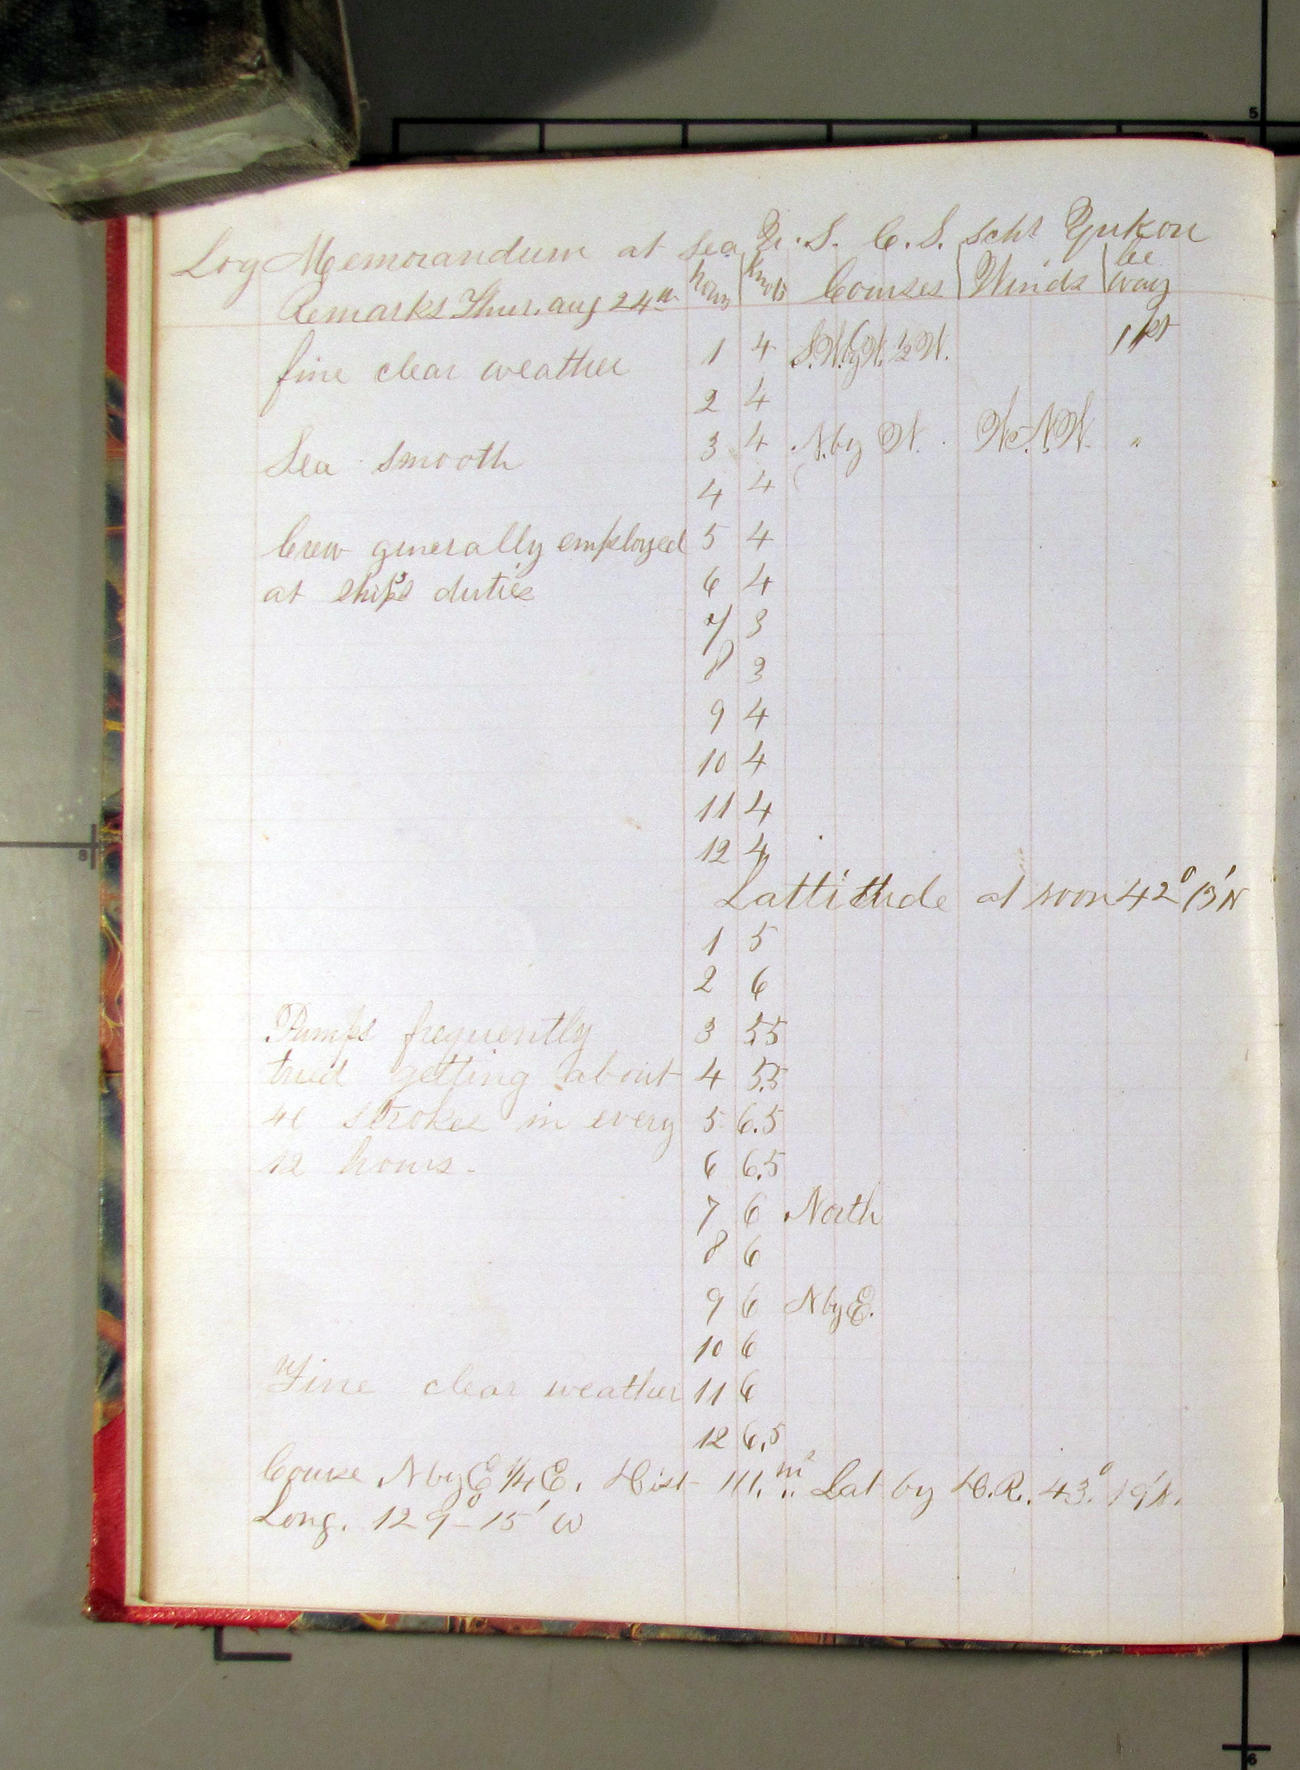 Log Memorandum at Sea U. S. C. S. Schr Yukon
Remarks Thur. aug 24th hours knots Courses Winds Lee way
fine clear weather 1 4 S.W.byW. ½ W. 1 pt
2 4
Sea smooth 3 4 N.by W. W.N.W. "
4 4
Crew generally employed 5 4
at ship's duties 6 4
7 3
8 3
9 4
10 4
11 4
12 4
Lattitude at noon 42° 13' N
1 5
2 6
Pumps frequently 3 5.5
tried getting about 4 5.5
strokes in every 5 6.5
12 hours. 6 6.5
7 6 North
8 6
9 6 N by E.
10 6
Fine clear weather 11 6
12 6.5
Course N by E ¼ E. Dist 111. ms. Lat by D.R. 43.° 19' N.
Long. 129°-15' W
5
8
6